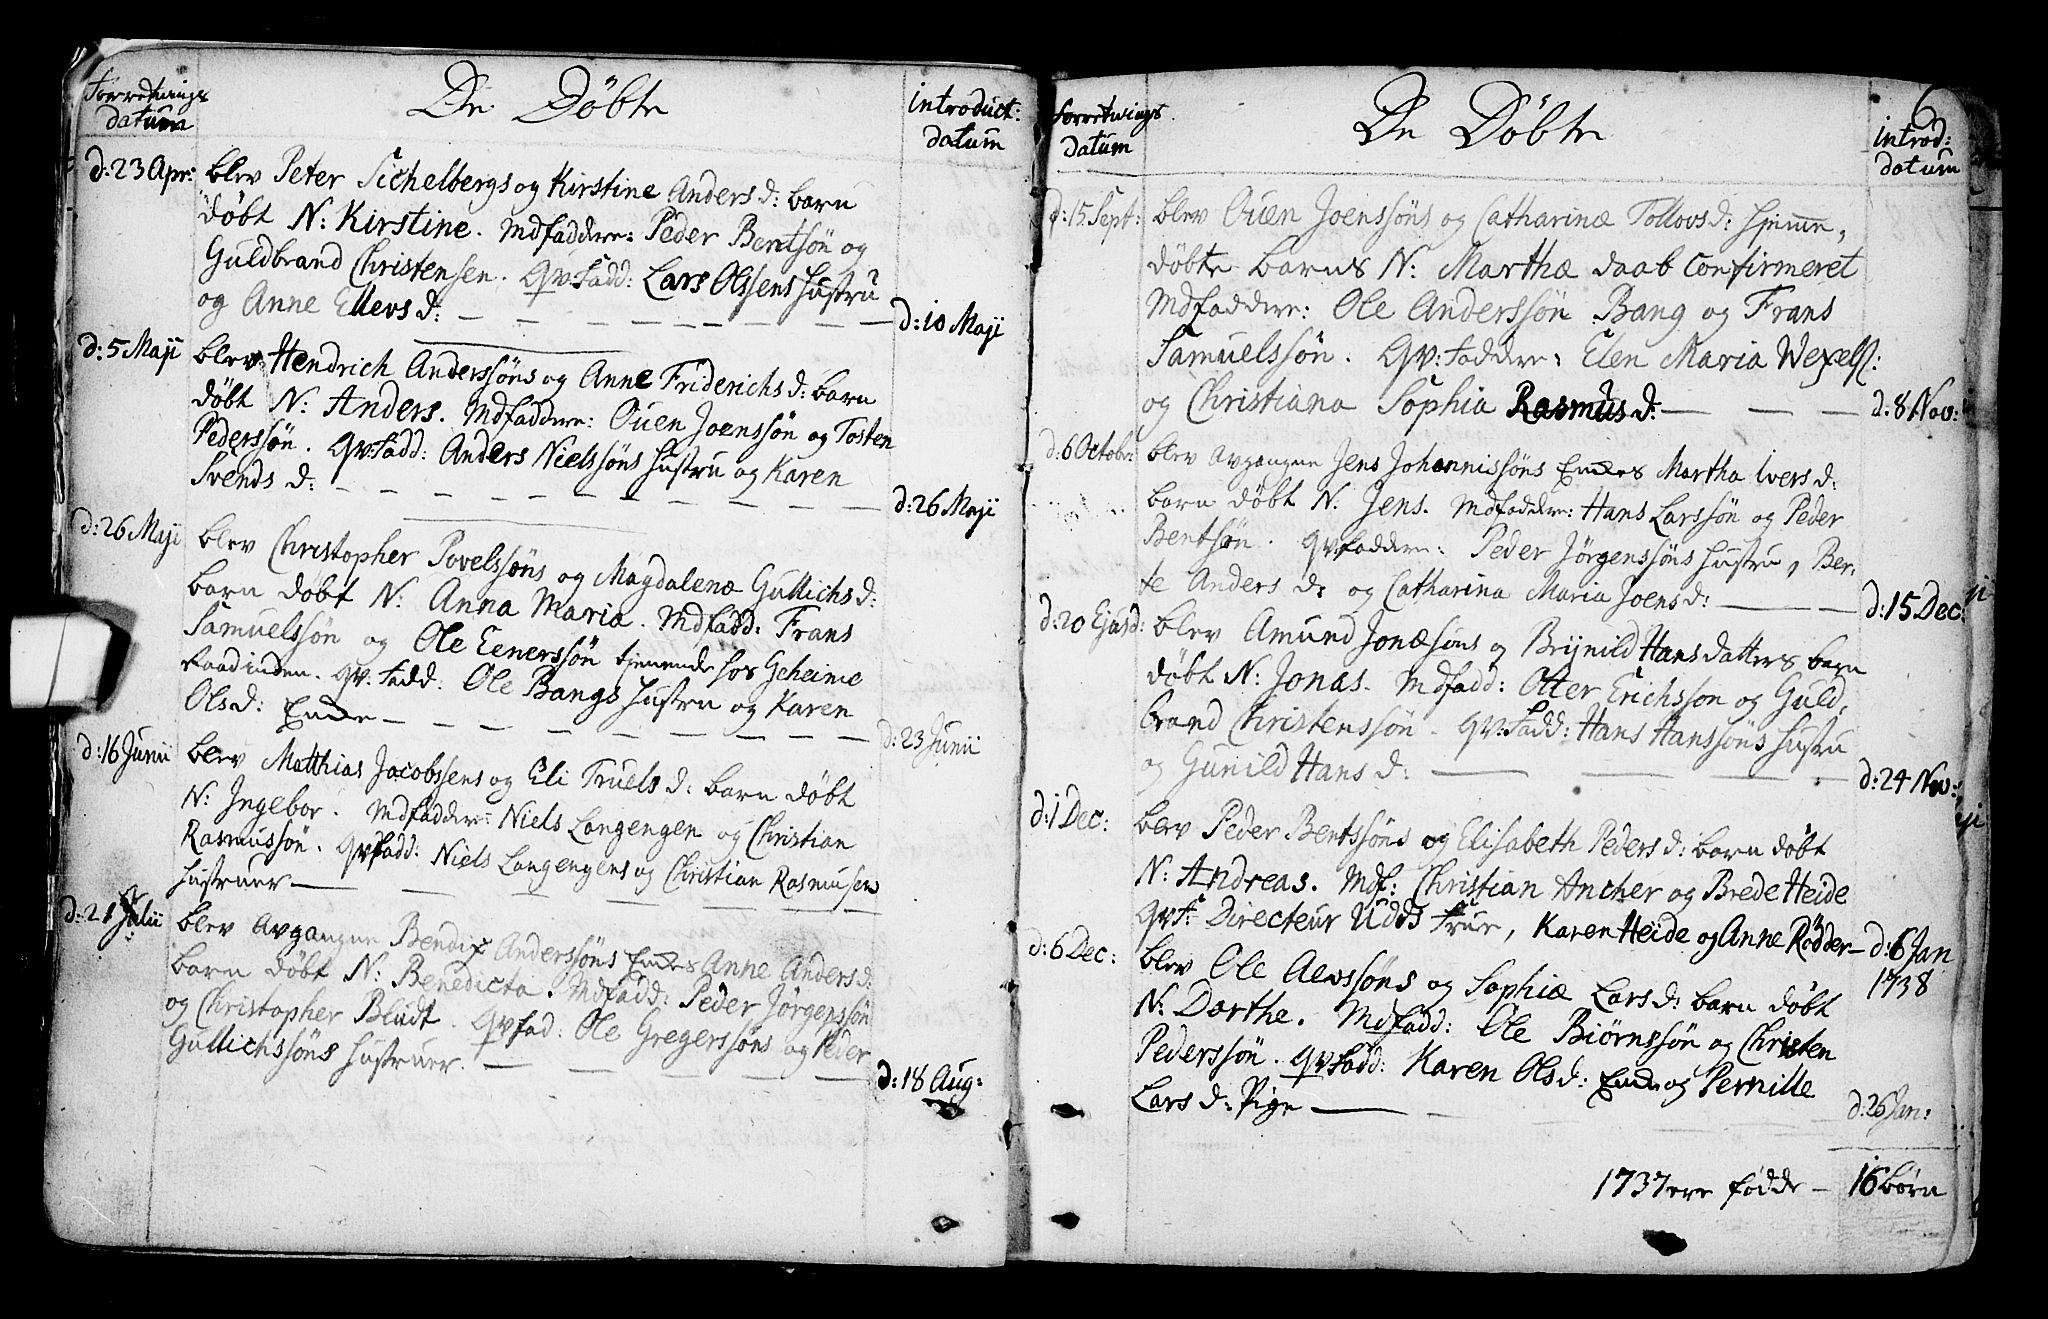 Forretnings
datum
De Döbte
introduct:
datum
d: 23 Apr: blev Peter Sichelbergs og Kirstine Anders d: barn
döbt N: Kirstine. Mdfaddere: Peder Bentsön og
Guldbrand Christensen. Qv: Fadd: Lars Olssens Hustru
og Anne Ellevs d: d: 10 Maji
d: 5 Maji blev Hendrich Anderssöns og Anne Friderichs d: barn
döbt N: Anders. Mdfaddere: Ouen Joenssön og Tosten
Pederssön. Qv: Fadd: Anders Nielssöns Hustru og Karen
Svends d: d: 26 Maji
d: 26 Maji blev Christopher Povelssöns og Magdalenæ Gullichs d:
barn döbt N: Anna Maria. Mdfadd: Frans
Samuelssön og Ole Eenerssön tjenende hos Geheime
Raadinden. Qv: Fadd: Ole Bangs Hustru og Karen
Ols d: Encke d: 23 Junii
d: 16 Junii blev Matthias Jacobssens og Eli Truels d: barn döbt
N: Ingebor. Mdfaddere: Niels Langengen og Christian
Rasmussön. Qvfadd: Niels Langengens og Christian Rasmusen
Hustruer
d: 21 Julii blev Avgangne Bendix Anderssöns Enckes Anne Anders d:
barn döbt N: Benedicta. Mdfadd: Peder Jörgenssön
og Christopher Bludt. Qvfad: Ole Gregerssöns og Peder
Gullichssöns Hustruer. d: 18 Aug:
6
Forretnings
datum
De Döbte
introd:
datum
d: 15 Sept: blev Ouen Joenssöns og Catharinæ Tollovs d: hjemme,
döbte barns N: Marthæ daab Confirmeret
Mdfaddere: Ole Anderssön Bang og Frans
Samuelssön. Qv: Faddere: Elen Maria Wexels:
og Christiana Sophia Rasmus d: d: 8 Nov:
d: 6 Octobr: blev Avgangne Jens Johannissöns Enckes Martha Ivers d:
barn döbt N: Jens. Mdfaddere: Hans Larssön og Peder
Bentsön. Qvfaddere: Peder Jörgenssöns Hustru, Ber,
te Anders d: og Catharina Maria Joens d: d: 15 Dec:
d: 20 Ejusd: blev Amund Jonæsöns og Brynild Hansdatters barn
döbt N: Jonas. Mdfadd: Otter Erichsson og Guld,
brand Christenssön. Qv: Fadd: Hans Hanssöns Hustru
og Gunild Hans d: d: 24 Nov:
d: 1 Dec: blev Peder Bentssöns og Elisabeth Peders d: barn döbt
N: Andreas. Mdf: Christian Ancher og Brede Heide
Qv F: Directeur Udds Frue, Karen Heide og Anne Rödder d: 6 Jan
1738
d: 6 Dec: blev Ole Alvssöns og Sophiæ Lars d: barn döbt
N: Dorthe. Mdfadd: Ole Biörnssön og Christen
Pederssön. Qvfadd: Karen Ols d: Encke og Pernille
Lars d: Pige d: 26 Jan:
1737 ere födde - 16 börn